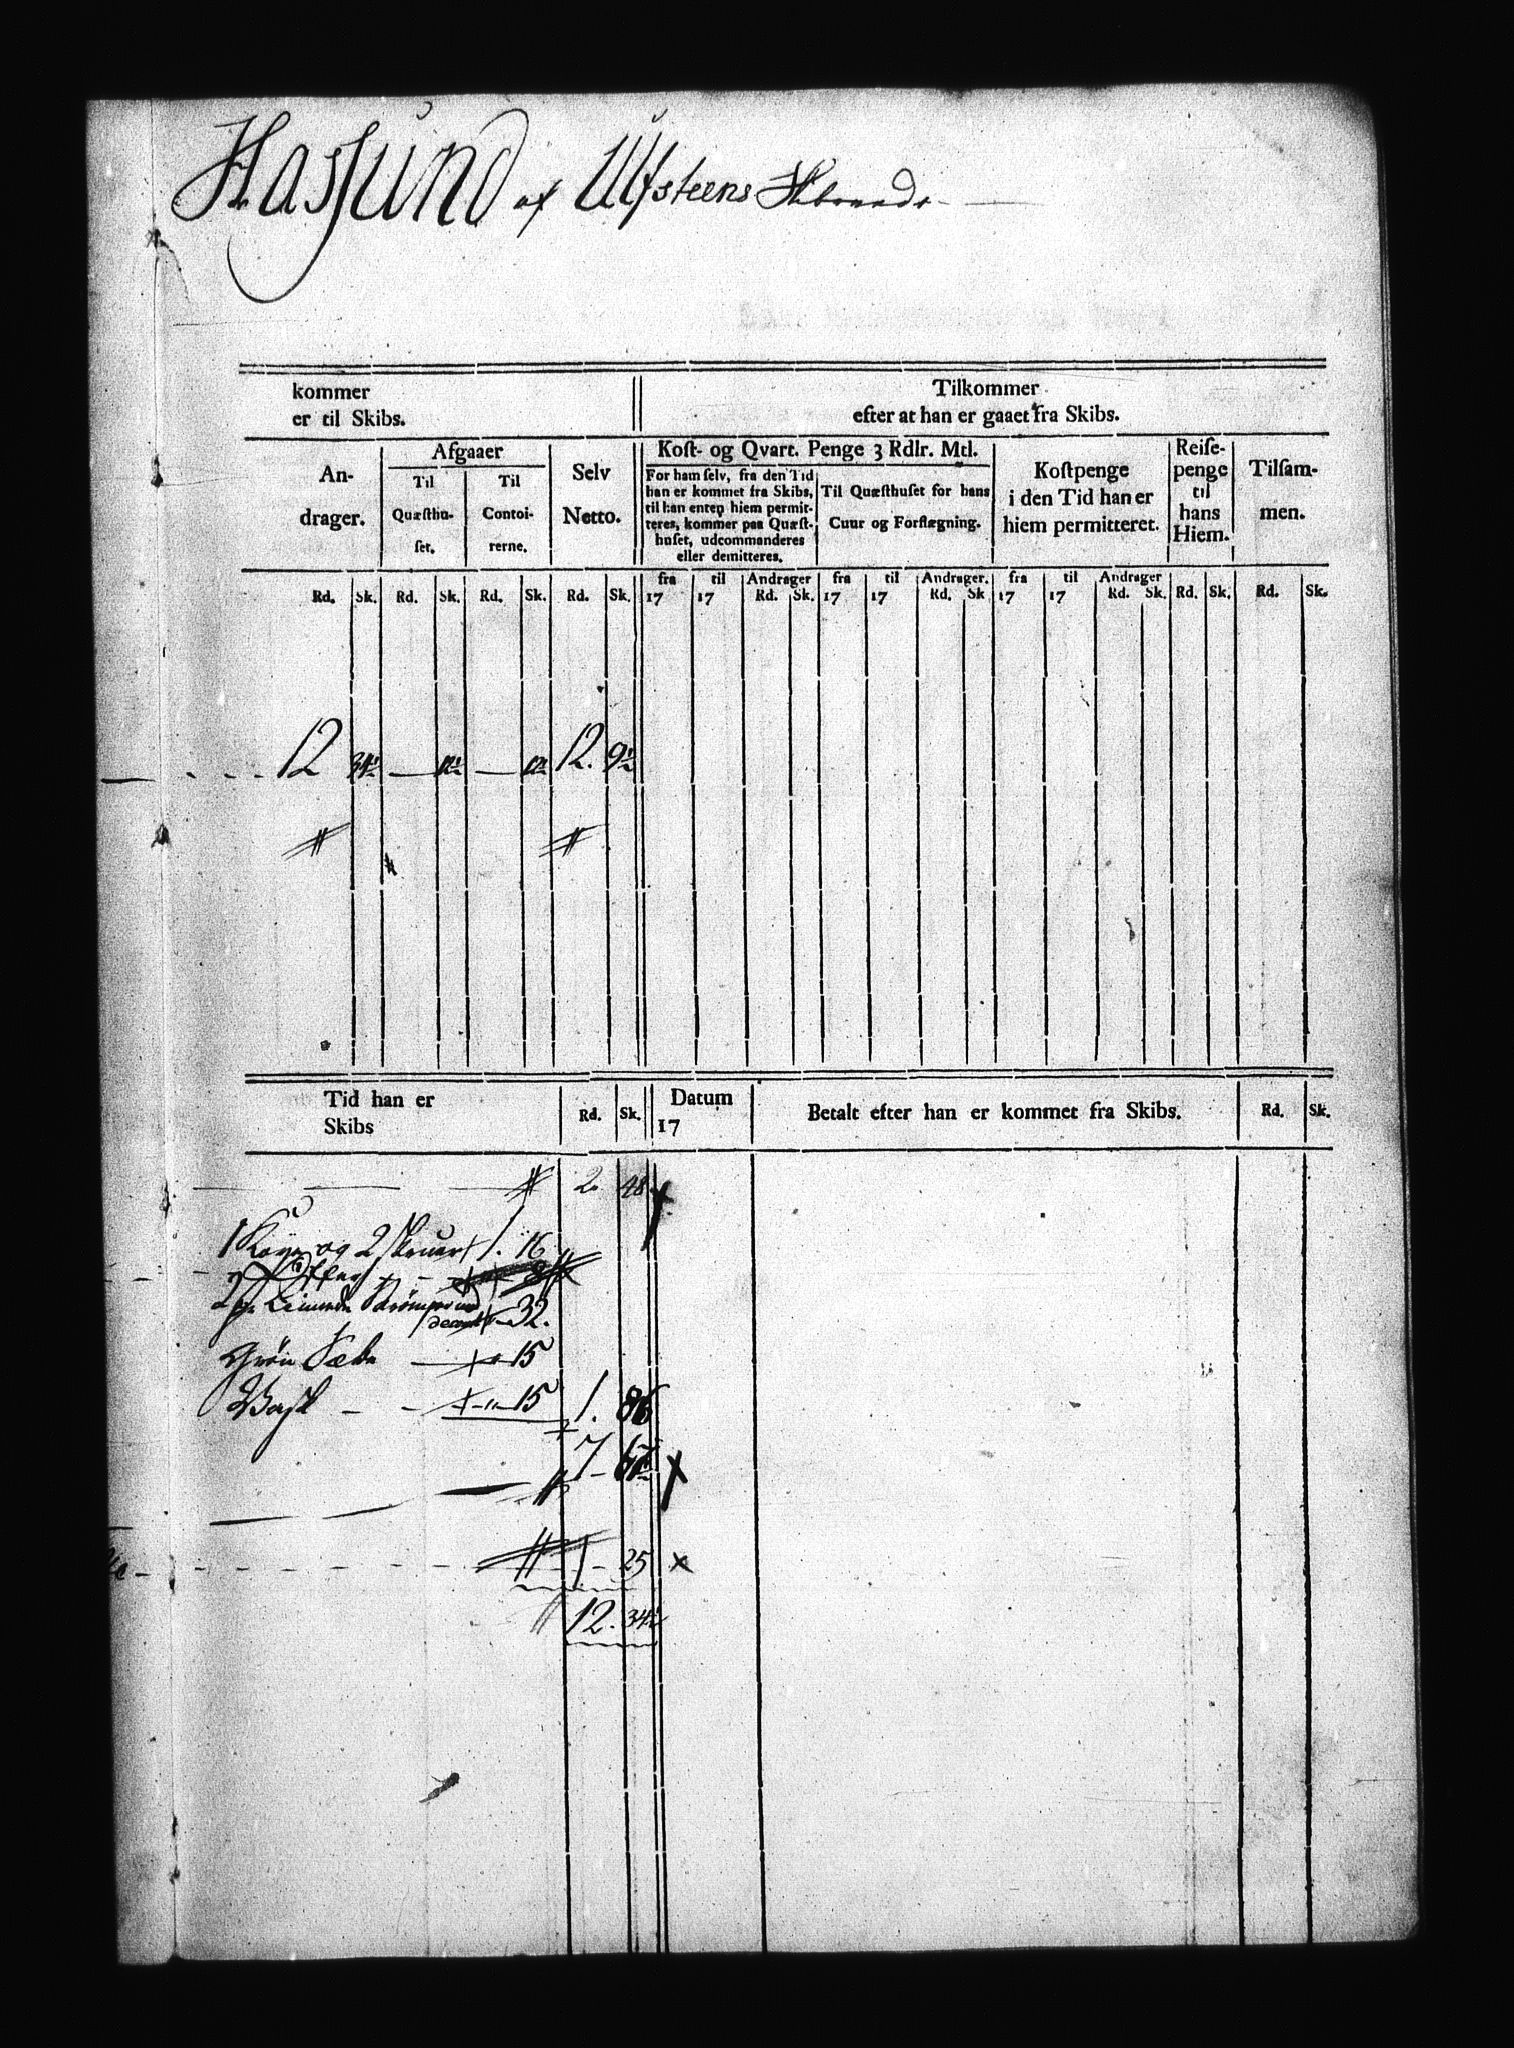 Hasund af Ulfsteens Skbraade
kommer
er til Skibs.
Tilkommer
efter at han er gaaet fra Skibs.
An-
drager.
Afgaaer
Til
Qvæsthu-
set.
Til
Contoi-
rerne.
Selv
Netto.
Kost- og Qvart. Penge 3 Rdlr. Mtl.
For ham selv, fra den Tid
han er kommet fra Skibs,
til han enten hiem permit-
teres, kommer paa Quæst-
huset, udcommanderes
eller demitteres.
Til Quæsthuset for hans
Cuur og Forflægning.
Kostpenge
i den Tid han er
hiem permitteret.
Reise-
penge
til
hans
Hiem.
Tilsam-
men.
fra til Andrager fra til Andrager. fra til Andrager
Rd. Sk. Rd. Sk. Rd. Sk. Rd. Sk. 17 17 Rd. Sk. 17 17 Rd. Sk 17 17 Rd. Sk. Rd. Sk. Rd. Sk.
12 34½ 12½ 12½ 12. 9½
Tid han er
Skibs
Rd. Sk.
Datum
17
Betalt efter han er kommet fra Skibs.
Rd. Sk.
2. 48
1 Køye og 2 Skruer 1. 16
8
32.
Grön Sæbe 15
Vask 15 1. 86
7 67½
1 - 25
12. 34½